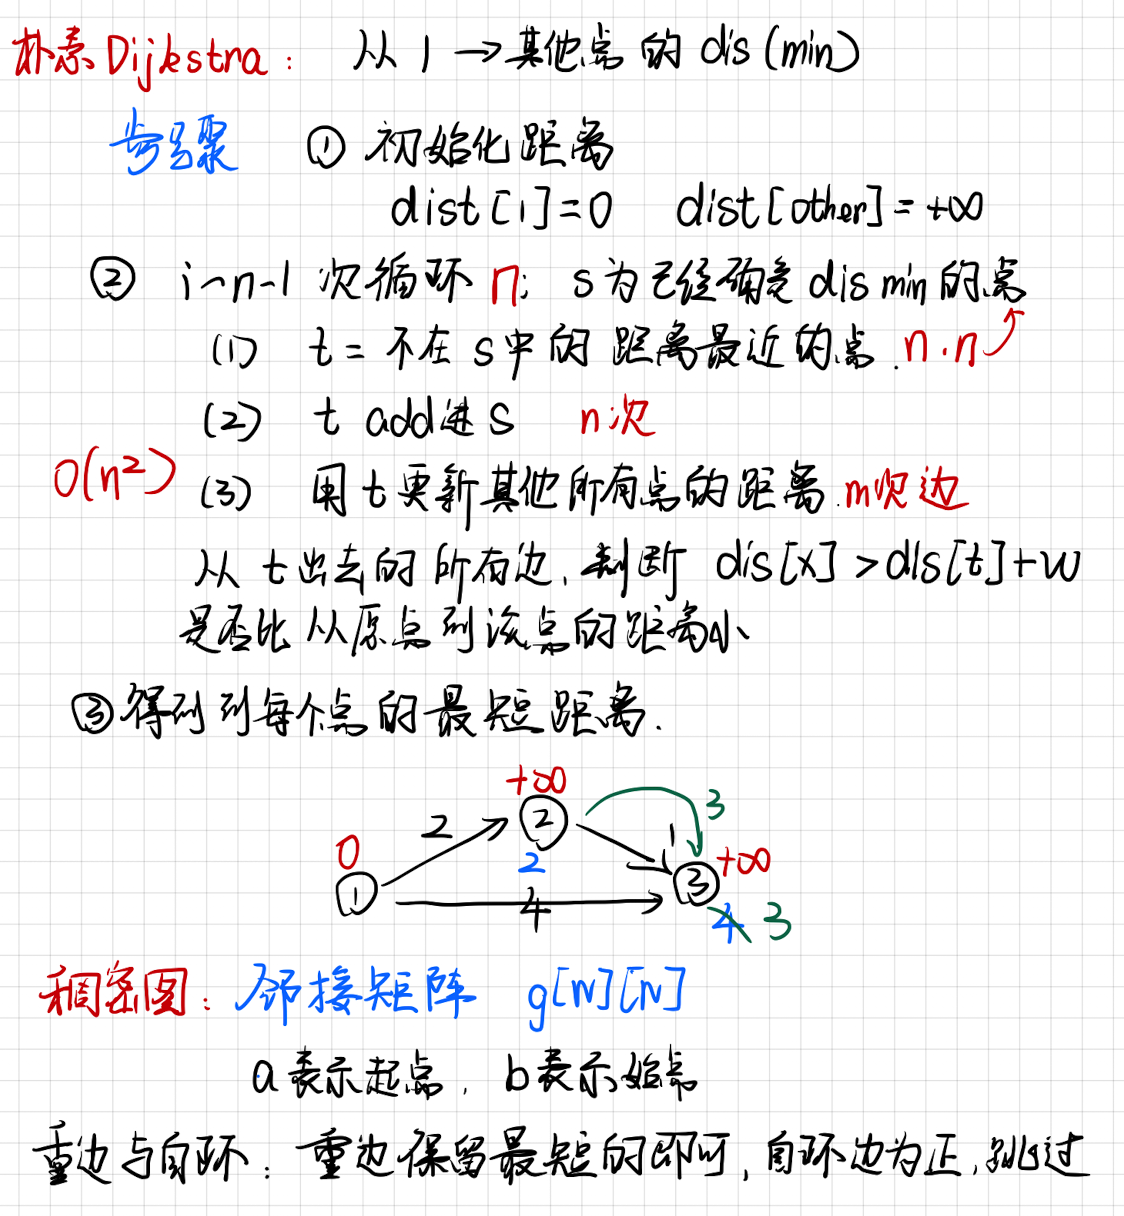 朴素Dijkstra： 从 1 → 其他点的 dis (min)
步骤 ① 初始化距离
dist[1]=0 dist[other]=+∞
② i~n-1 次循环 n; s为已经确定 dis min的点
(1) t = 不在 s中的 距离最近的点. n·n
(2) t add进 S n次
O(n²) (3) 用 t 更新其他所有点的距离. m次边
从 t 出去的所有边, 判断 dis[x] > dis[t]+w
是否比从原点到该点的距离小
③ 得到到每个点的最短距离.
+∞
2 ② 3
0 1
2 ③ +∞
①
4 4 3
稠密图: 邻接矩阵 g[N][N]
a表示起点, b表示始点
重边与自环: 重边保留最短的即可, 自环边为正, 跳过